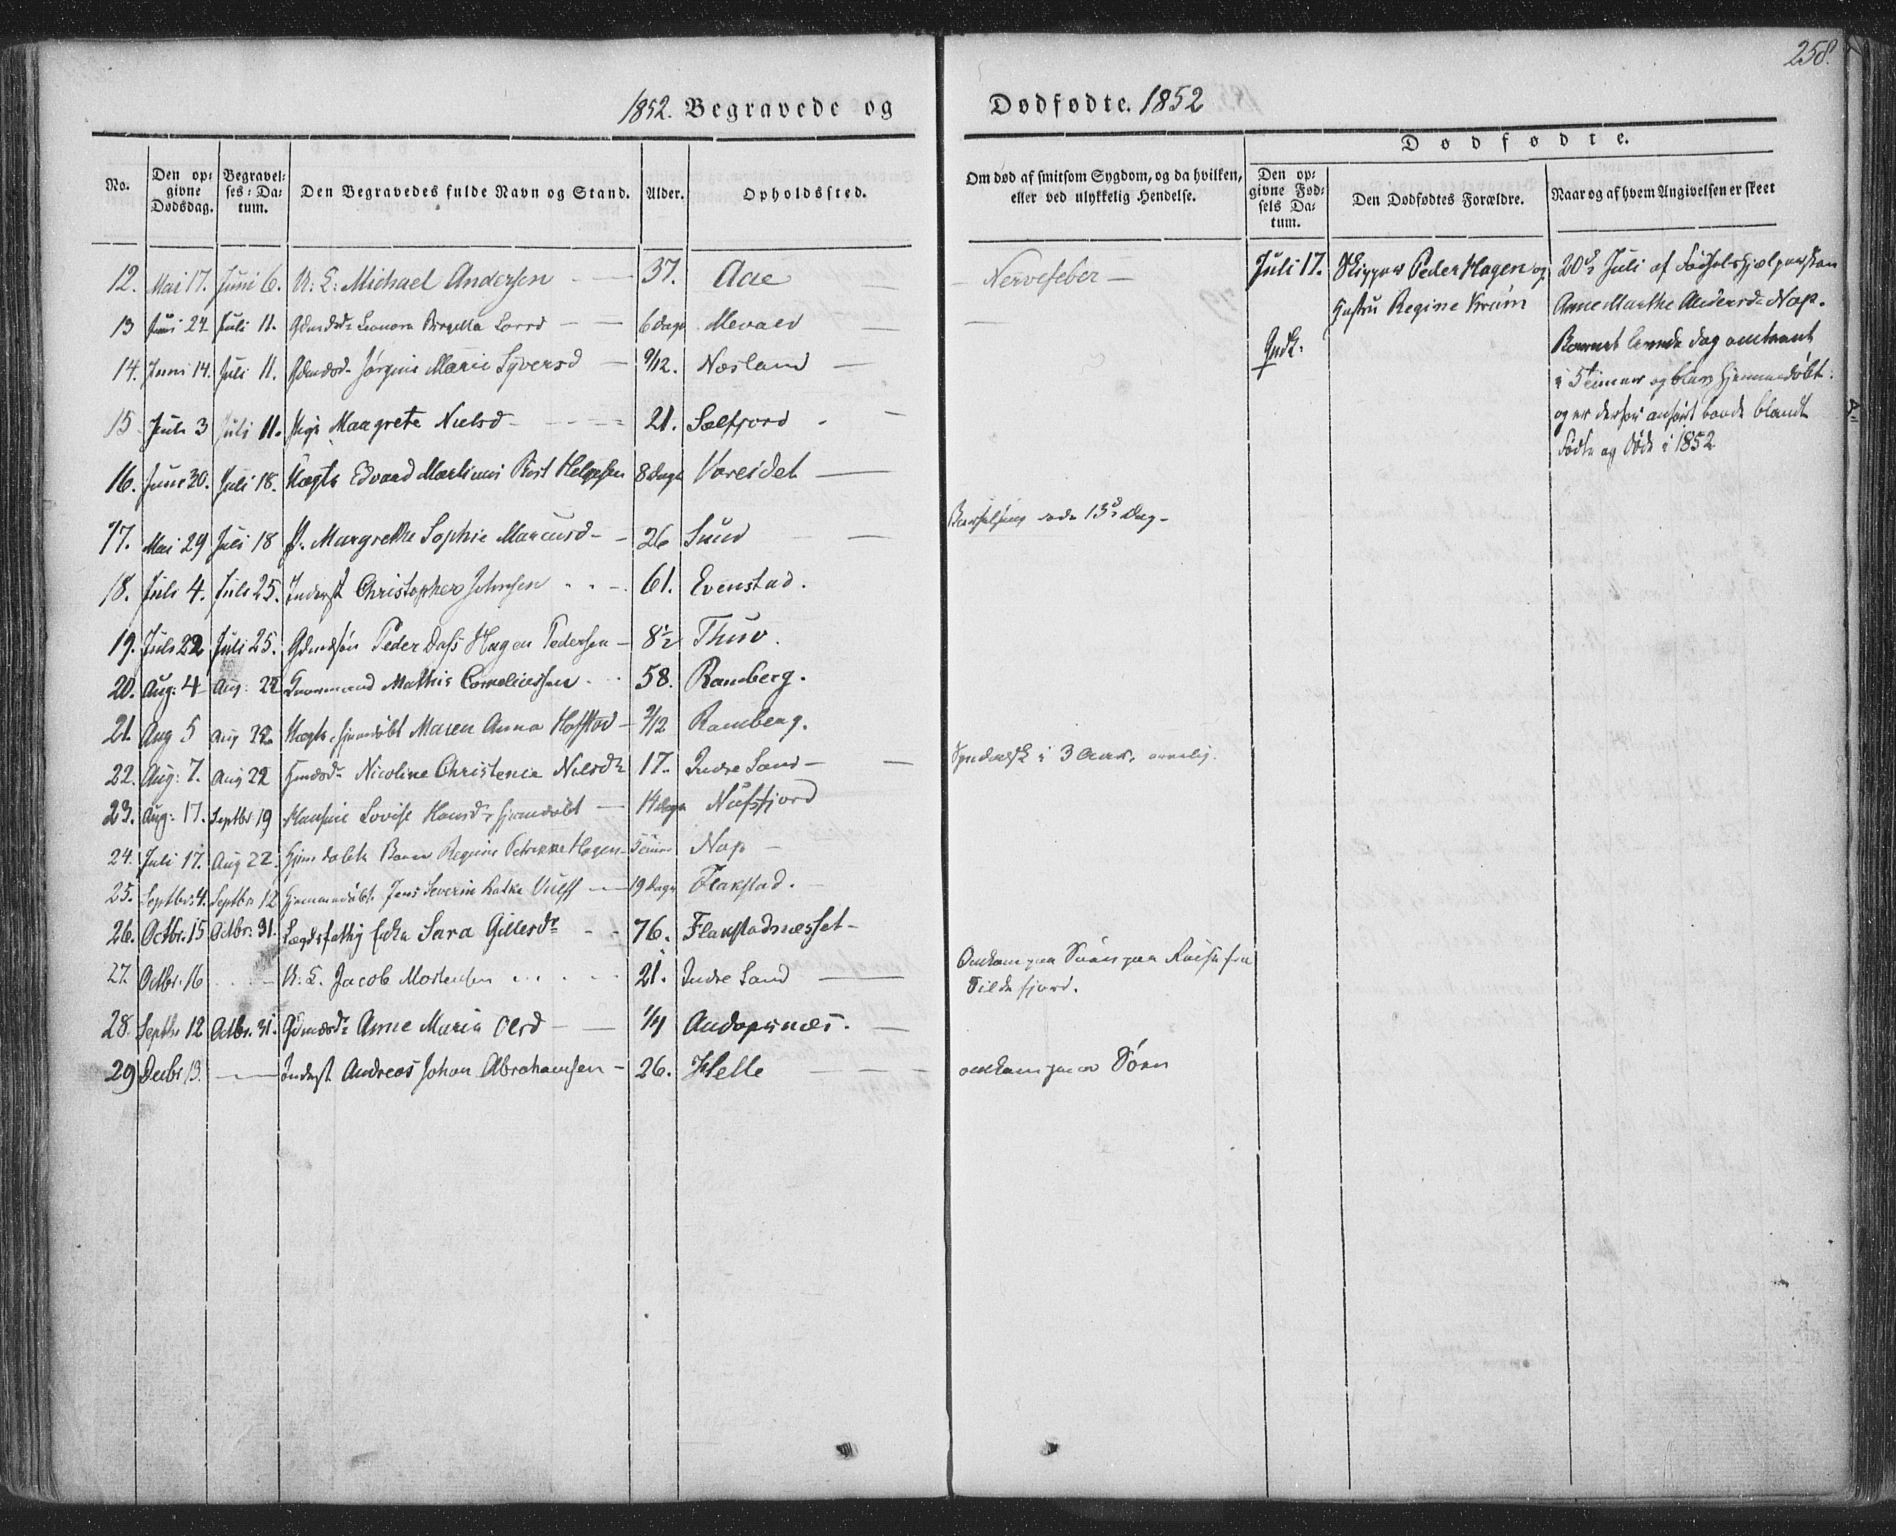 258.
1852. Begravede og Dødfødte. 1852
Dødfødte.
No. Den opgivne Dødsdag. Begravelses-Datum. Den Begravedes fulde Navn og Stand. Alder. Opholdssted. Om død af smitsom Sygdom, og da hvilken, eller ved ulykkelig Hendelse. Den opgivne Fødsels Datum. Den Dødfødtes Forældre. Naar og af hvem Angivelsen er skeet
12. Mai 17. Juni 6. U: L: Michael Andersen 37. Aae — Nervefeber —
13 Juni 24. Juli 11. Leonora 6 dage Mevald
14. Juni 14. Juli 11. Jørgine Marie Syversd 9/12. Nesland
15 Juli 3 Juli 11. Pige Margrete Nielsd 21. Selfjord
16. Juni 30. Juli 18. Uægte Edvard Martinus 8 Dage Vareidet
17. Mai 29 Juli 18 Margrethe Sophie Marcusd 26 Sund 13de Dag
18. Juli 4. Juli 25. Inderst Christopher Johnsen 61. Evenstad.
19. Juli 22 Juli 25. Gdmdsøn Peder Dass Hagen Pedersen 8½ Thuv.
20. Aug: 4 Aug: 22 Mathis Corneliussen 58. Ramberg.
21. Aug 5 Aug 22 Uægte, hjemdøbt Maren Anna Hofstad 9/12 Ramberg.
22. Aug: 7. Aug 22 Nicoline Christence Nilsdr 17. Indre Sand — i 3 Aar
23. Aug: 17. Septbr 19 Hansine Lovise Hansdr hjemdøbt 14 dage Nufsfjord
24. Juli 17. Aug 22. Hjemdøbte Barn Regine Petrikke Hagen 5 Timer Nap
25. Septbr. 4. Septbr 12 Hjemmedøbt Jens Severin Ratke Wulff 19 Dage Flakstad.
26. Octbr. 15 Octbr. 31. Lægdsfattig Enke Sara Gillesdr 76. Flakstadnesset
27. Octbr. 16 U: L. Jacob Mortensen 21. Indre Sand — Omkom paa Søen paa Reise fra
Sildefjord.
28. Septbr 12 Octbr. 31. Gdmdsdr Anne Maria Olsd 1/4 Andopsnæs.
29 Decbr 13. Inderst Andreas Johan Abrahamsen 26. Helle — omkom paa Søen
Juli 17. Skipper Peder Hagen og
Hustru Regine Krum
Gudt.
20de Juli af Fødselshjælpersken
Anne Marthe Andersdr Nap.
Barnet levede dog omtrent
i 5 timer og blev hjemmedøbt
og er derfor anført baade blandt
Fødte og Døde i 1852